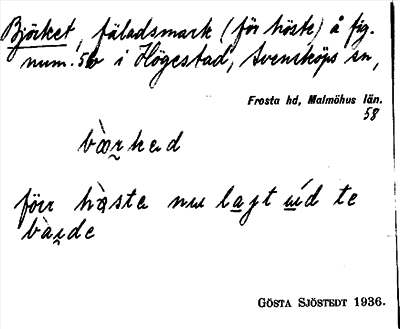 Björket, fäladsmark (för höste) å fig.
num. 5b i Högestad, Svensköps sn,
Frosta hd, Malmöhus län.
58
bàrkəd
förr hàsta nu lagt uíd te
bàıdə
GÖSTA SJÖSTEDT 1936.